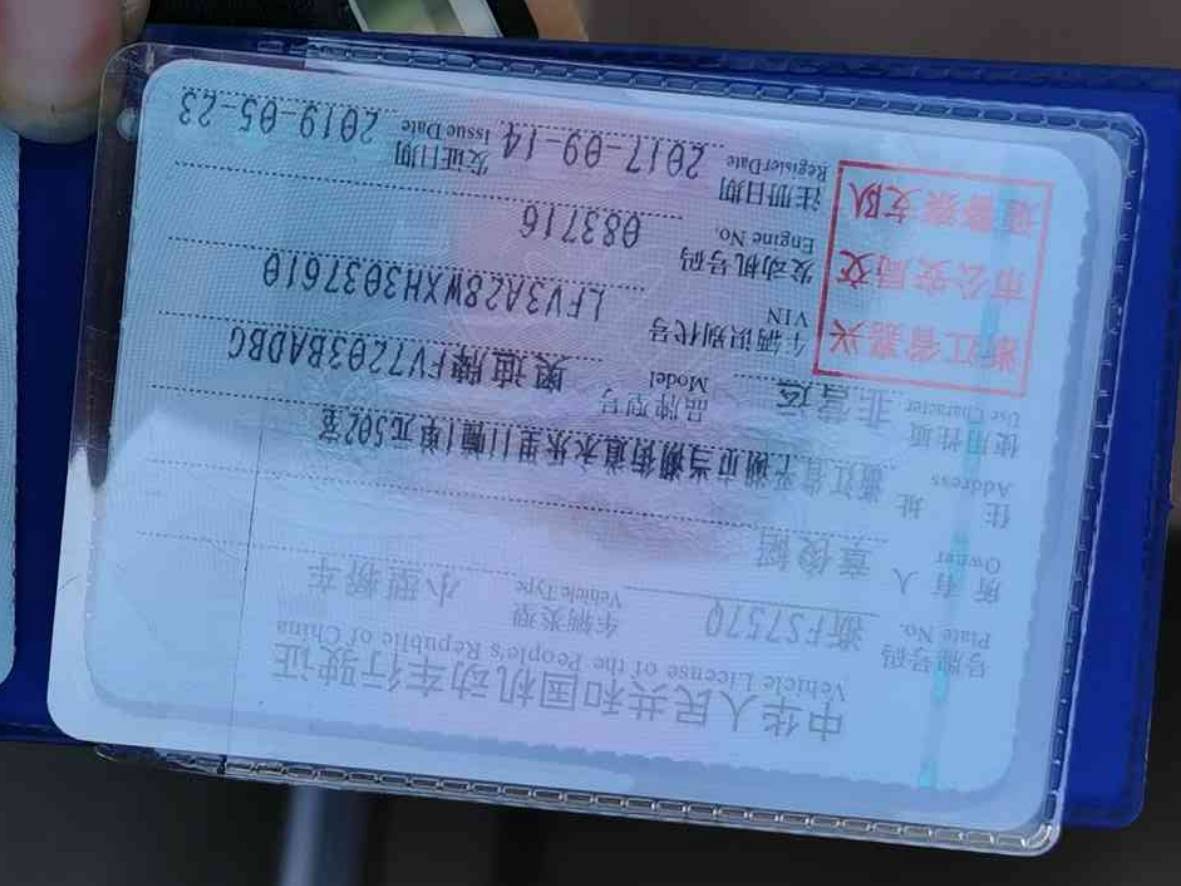 中华人民共和国机动车行驶证
Vehicle License of the People's Republic of China
号牌号码 浙FS757Q 车辆类型 小型轿车
Plate No. Vehicle Type
所有人
Owner
住址 浙江省平湖市当湖街道永乐里11幢1单元502室
Address
使用性质 非营运 品牌型号 奥迪牌FV7203BADBG
Use Character Model
浙江省嘉兴
市公安局交
通警察支队
车辆识别代号 LFV3A28WXH3037610
VIN
发动机号码 083716
Engine No.
注册日期 2017-09-14 发证日期 2019-05-23
Register Date Issue Date